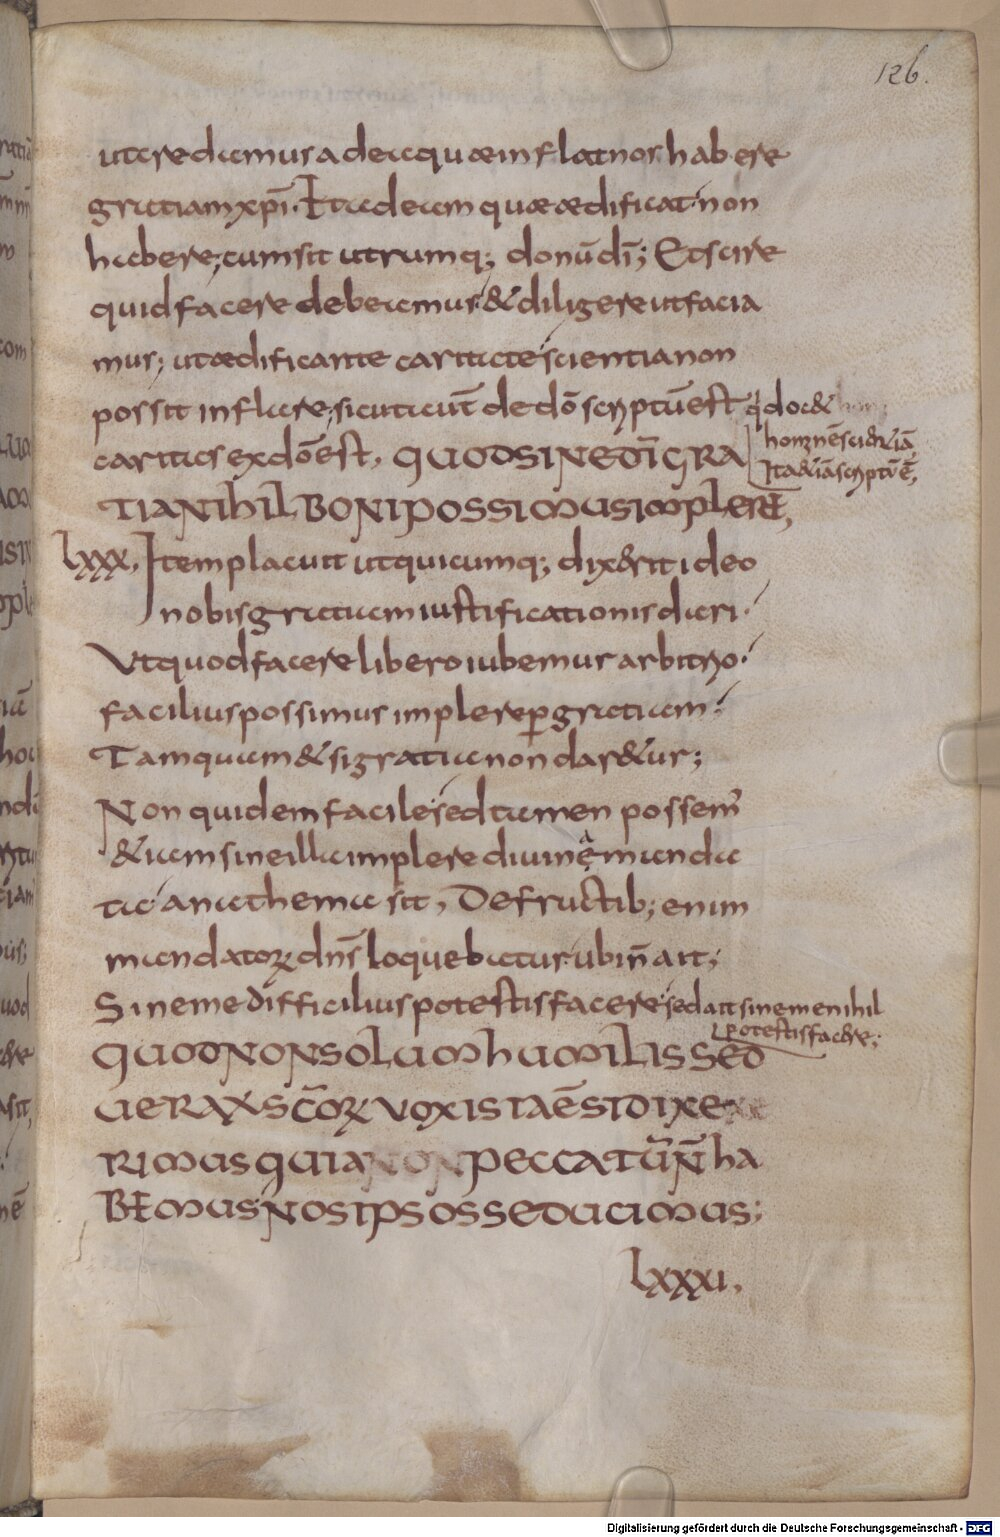 126.
ut credamus ad ea quae inflat nos habere
gratiam xpi. Et ad eam quae aedificat non
habere; cum sit utrumq; donū dī; Et scire
quid facere debeamus & diligere ut facia
mus; ut aedificante caritate scientia non
possit inflare; sicut aūt de dō scriptū est qi doc&
hominē scientiā
Ita & iā scriptū ē,
caritas ex dō est, QUOD SINE DĪ GRA
TIA NIHIL BONI POSSIMUS IMPLERE,
lxxx, Item placuit ut quicumq; dix&rit ideo
nobis gratiam iustificationis dari.
Ut quod facere libero iubemur arbitrio.
facilius possimus implere p gratiam.
Tamquam & si gratia non dar&ur;
Non quidem facile sed tamen possem'
&iam sine illa implere divina manda
ta anathema sit, De fructib; enim
mandatorꝝ dn̄s loquebatur ubi n̄ ait;
Sine me difficilius potestis facere sed ait sine me nihil
potestis facere;
QUOD NON SOLUM HUMILIS SED
UERAX SC̄ORꝝ VOX ISTA Ē SI DIXE
RIMUS QUIA NON PECCATŪ N̄ HA
BEMUS NOS IPSOS SEDUCIMUS;
lxxxi,
Digitalisierung gefördert durch die Deutsche Forschungsgemeinschaft - DFG